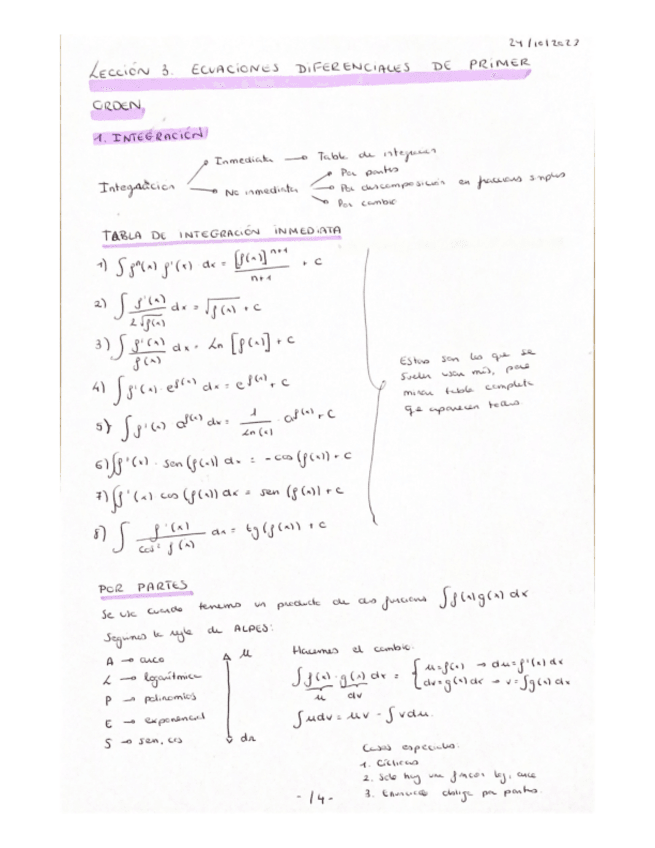 24/10/2023
LECCIÓN 3. ECUACIONES DIFERENCIALES DE PRIMER
ORDEN
1. INTEGRACIÓN
Integración
Inmediata → Tabla de integrales
No inmediata
Por partes
Por descomposición en fracciones simples
Por cambio
TABLA DE INTEGRACIÓN INMEDIATA
1) ∫ fⁿ(x) f'(x) dx = [f(x)]ⁿ⁺¹ / n+1 + C
2) ∫ f'(x) / 2√f(x) dx = √f(x) + C
3) ∫ f'(x) / f(x) dx = Ln [f(x)] + C
4) ∫ f'(x) · e^f(x) dx = e^f(x) + C
5) ∫ f'(x) a^f(x) dx = 1 / Ln(a) · a^f(x) + C
6) ∫ f'(x) · sen (f(x)) dx = -cos (f(x)) + C
7) ∫ f'(x) cos (f(x)) dx = sen (f(x)) + C
8) ∫ f'(x) / cos² f(x) dx = tg (f(x)) + C
Estas son las que se
suelen usar más, pero
mirar tabla completa
que aparecen todas.
POR PARTES
Se usa cuando tenemos un producto de dos funciones ∫ f(x) g(x) dx
Seguimos la regla de ALPES:
A → arco
L → logarítmica
P → polinomios
E → exponencial
S → sen, cos
u
dv
Hacemos el cambio:
∫ f(x) · g(x) dx = { u = f(x) → du = f'(x) dx
dv = g(x) dx → v = ∫ g(x) dx
u dv
∫ u dv = uv - ∫ v du.
Casos especiales:
1. Cíclicas
2. Solo hay una función log, arco
3. Enunciado obliga por partes.
- 14 -